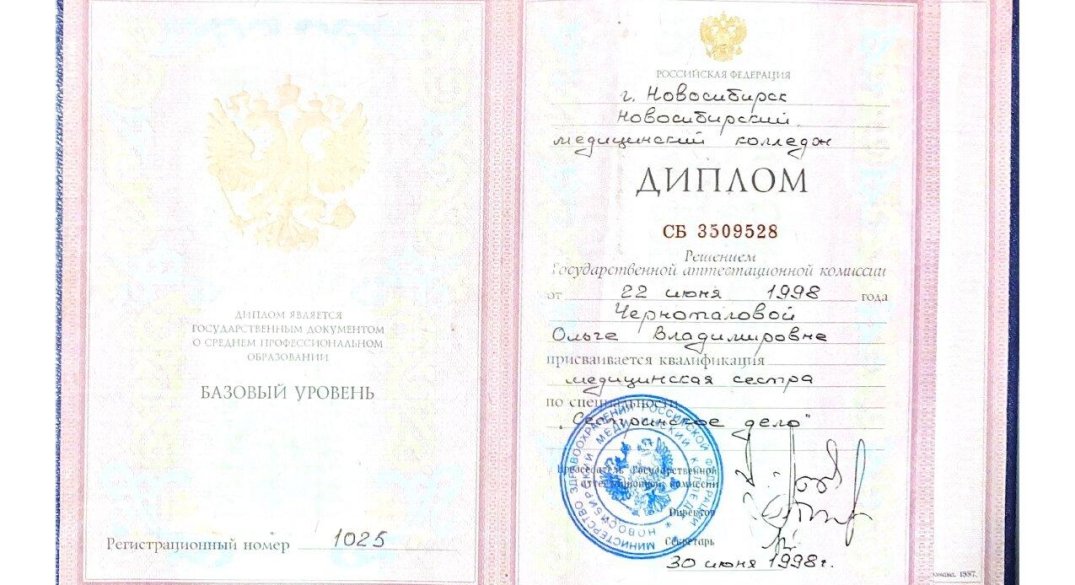 ДИПЛОМ ЯВЛЯЕТСЯ
ГОСУДАРСТВЕННЫМ ДОКУМЕНТОМ
О СРЕДНЕМ ПРОФЕССИОНАЛЬНОМ
ОБРАЗОВАНИИ
БАЗОВЫЙ УРОВЕНЬ
Регистрационный номер 1025
РОССИЙСКАЯ ФЕДЕРАЦИЯ
г. Новосибирск
Новосибирский
медицинский колледж
ДИПЛОМ
СБ 3509528
Решением
Государственной аттестационной комиссии
от 22 июня 1998 года
Черноталовой
Ольге Владимировне
присваивается квалификация
медицинская сестра
по специальности
"Сестринское дело"
Председатель Государственной
аттестационной комиссии
Директор
Секретарь
30 июня 1998г.
МИНИСТЕРСТВО ЗДРАВООХРАНЕНИЯ РОССИЙСКОЙ ФЕДЕРАЦИИ
НОВОСИБИРСКИЙ МЕДИЦИНСКИЙ КОЛЛЕДЖ
1997.